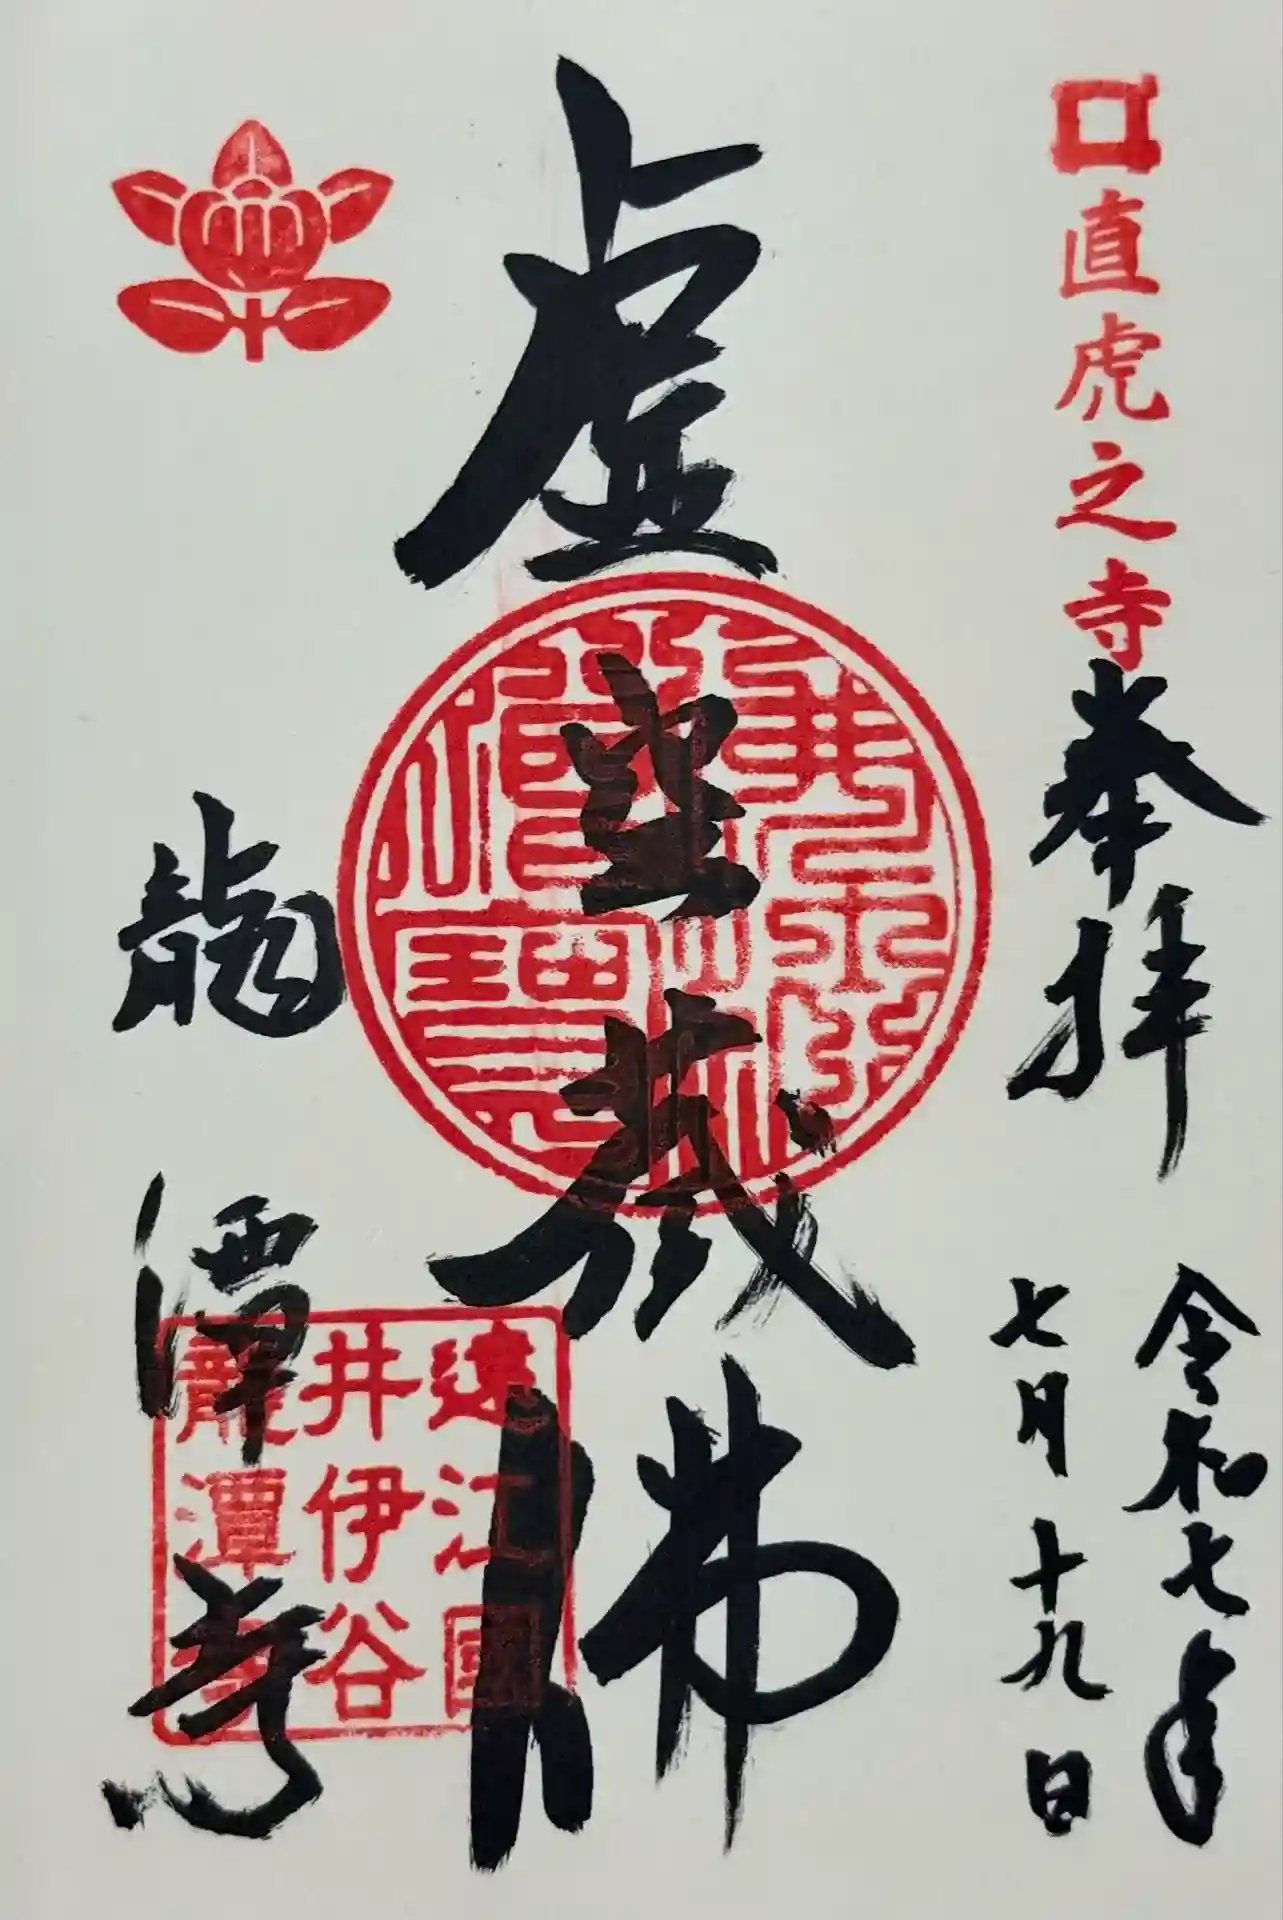 直虎之寺
奉拝
令和七年
七月十九日
虚空蔵佛
佛法僧寶
遠江國
井伊谷
龍潭寺
龍潭寺